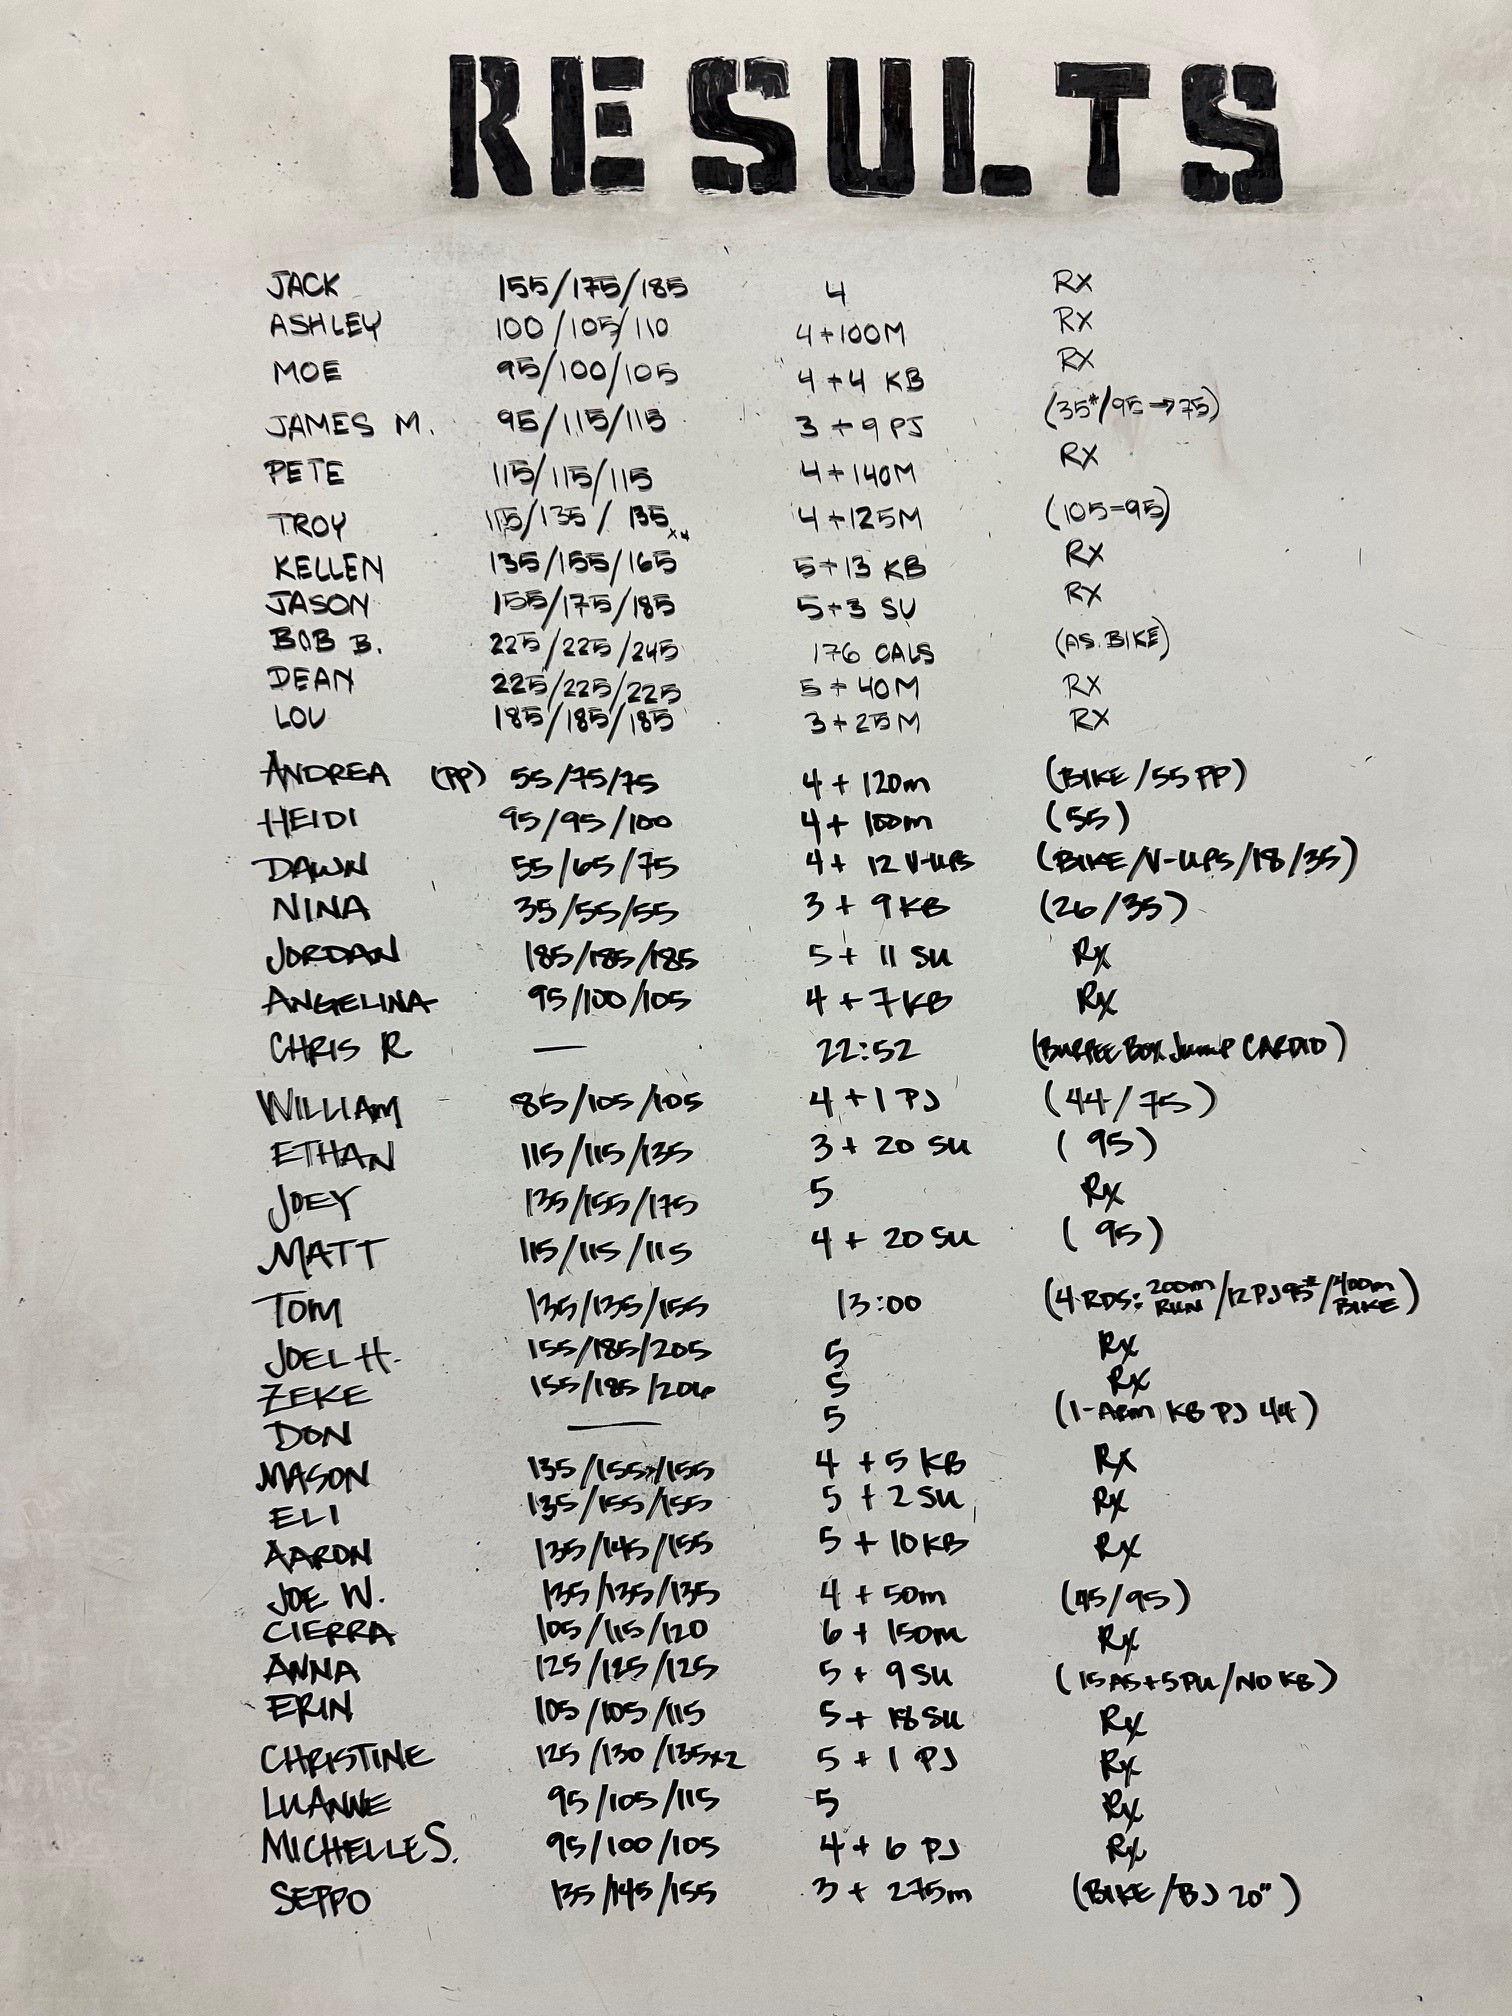 RESULTS
JACK 155/175/185 4 RX
ASHLEY 100/105/110 4+100M RX
MOE 95/100/105 4+4 KB RX
JAMES M. 95/115/115 3+9 PJ (35#/95→75)
PETE 115/115/115 4+140M RX
TROY 115/135/135 x4 4+125M (105-95)
KELLEN 135/155/165 5+13 KB RX
JASON 155/175/185 5+3 SU RX
BOB B. 225/225/245 176 CALS (AS. BIKE)
DEAN 225/225/225 5+40M RX
LOU 185/185/185 3+25M RX
ANDREA (PP) 55/75/75 4+120m (BIKE/55 PP)
HEIDI 95/95/100 4+100m (55)
DAWN 55/65/75 4+12 V-UPS (BIKE/V-UPS/18/35)
NINA 35/55/55 3+9 KB (26/35)
JORDAN 185/185/185 5+11 SU Rx
ANGELINA 95/100/105 4+7 KB Rx
CHRIS R — 22:52 (BURPEE BOX JUMP CARDIO)
WILLIAM 85/105/105 4+1 PJ (44/75)
ETHAN 115/115/135 3+20 SU (95)
JOEY 135/155/175 5 Rx
MATT 115/115/115 4+20 SU (95)
TOM 135/135/155 13:00 (4 RDS: 200m RUN/12 PJ 95#/400m BIKE)
JOEL H. 155/185/205 5 Rx
ZEKE 155/185/206 5 Rx
DON — 5 (1-ARM KB PJ 44)
MASON 135/155/155 4+5 KB Rx
ELI 135/155/155 5+2 SU Rx
AARON 135/145/155 5+10 KB Rx
JOE W. 135/135/135 4+50m (45/95)
CIERRA 105/115/120 6+150m Rx
ANNA 125/125/125 5+9 SU (15 AS+5 PU/NO KB)
ERIN 105/105/115 5+18 SU Rx
CHRISTINE 125/130/135x2 5+1 PJ Rx
LUANNE 95/105/115 5 Rx
MICHELLE S. 95/100/105 4+6 PJ Rx
SEPPO 135/145/155 3+275m (BIKE/BJ 20")